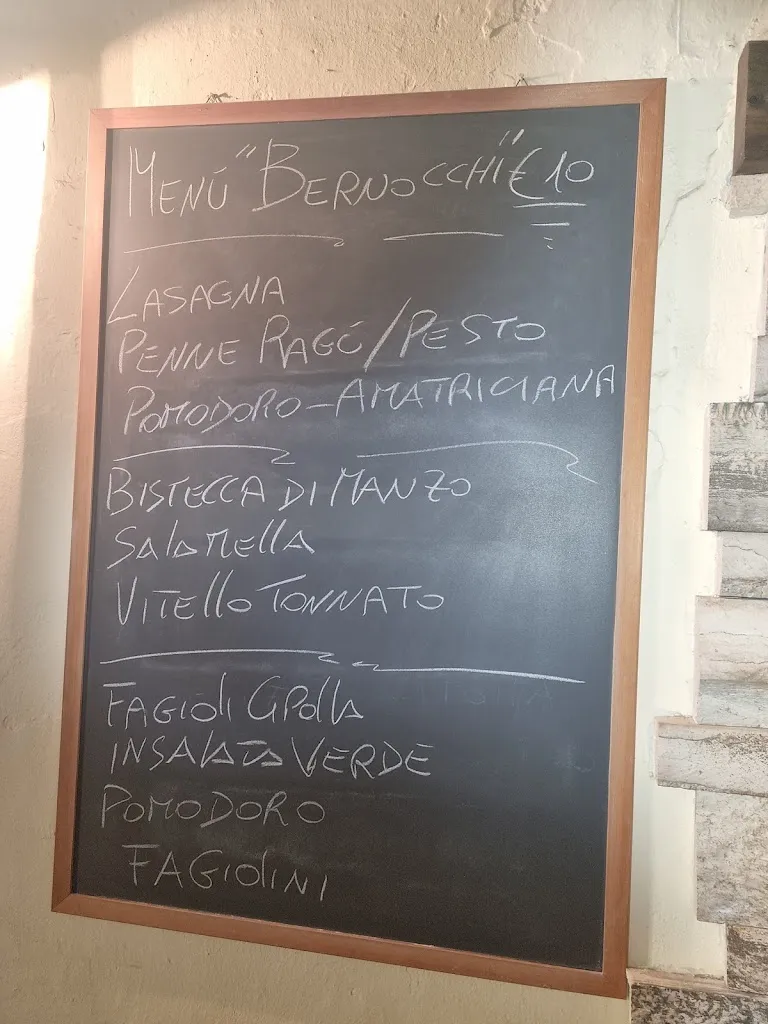 MENÚ "BERNOCCHI" € 10
LASAGNA
PENNE RAGÚ/PESTO
POMODORO-AMATRICIANA
BISTECCA DI MANZO
SALAMELLA
VITELLO TONNATO
FAGIOLI CIPOLLA
INSALATA VERDE
POMODORO
FAGIOLINI